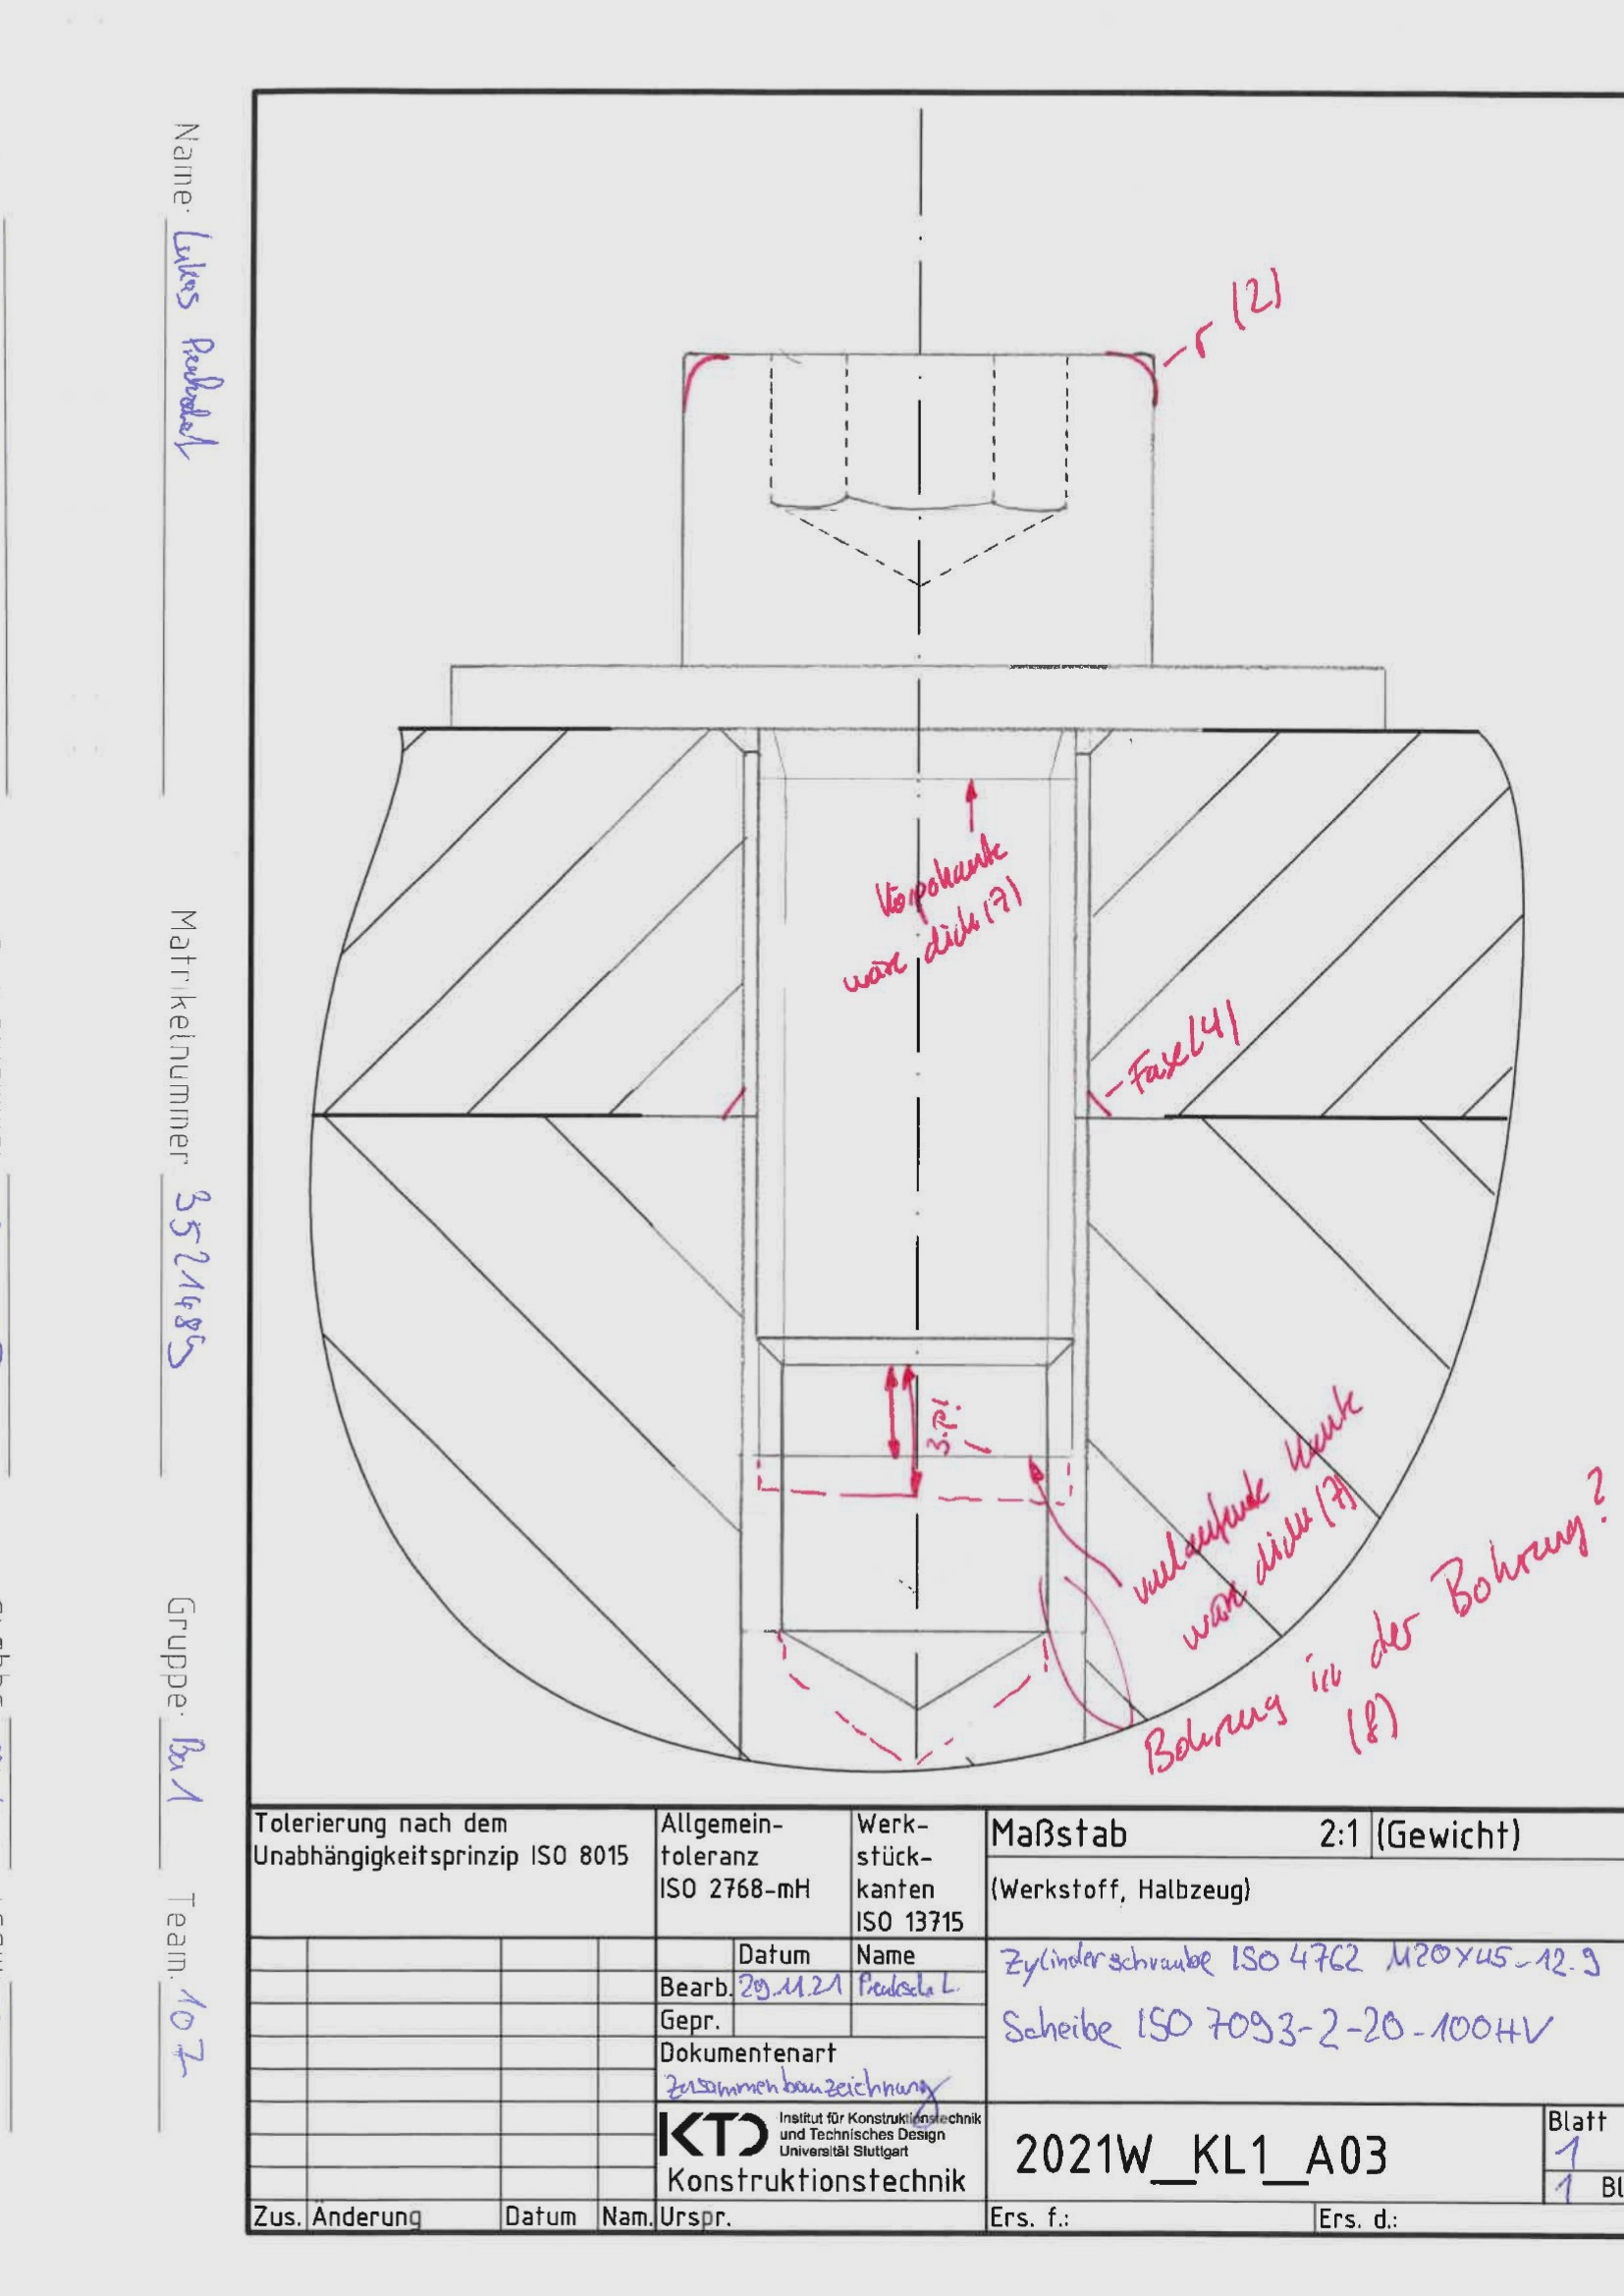 Name: Lukas
Matrikelnummer 3521489
Gruppe: Ba1
Team: 107
-r (2)
wäre dick (7)
-Fase (4)
3·P!
wäre dick (7)
Bohrung in der Bohrung?
(8)
Tolerierung nach dem
Unabhängigkeitsprinzip ISO 8015
Allgemein-
toleranz
ISO 2768-mH
Werk-
stück-
kanten
ISO 13715
Maßstab 2:1 (Gewicht)
(Werkstoff, Halbzeug)
Datum Name
Bearb. 29.11.21
Gepr.
Dokumentenart
Zusammenbauzeichnung
Zylinderschraube ISO 4762 M20x45-12.9
Scheibe ISO 7093-2-20-100HV
KTD
Institut für Konstruktionstechnik
und Technisches Design
Universität Stuttgart
Konstruktionstechnik
2021W_KL1_A03
Blatt
1
1 Bl
Zus. Änderung Datum Nam. Urspr. Ers. f.: Ers. d.: